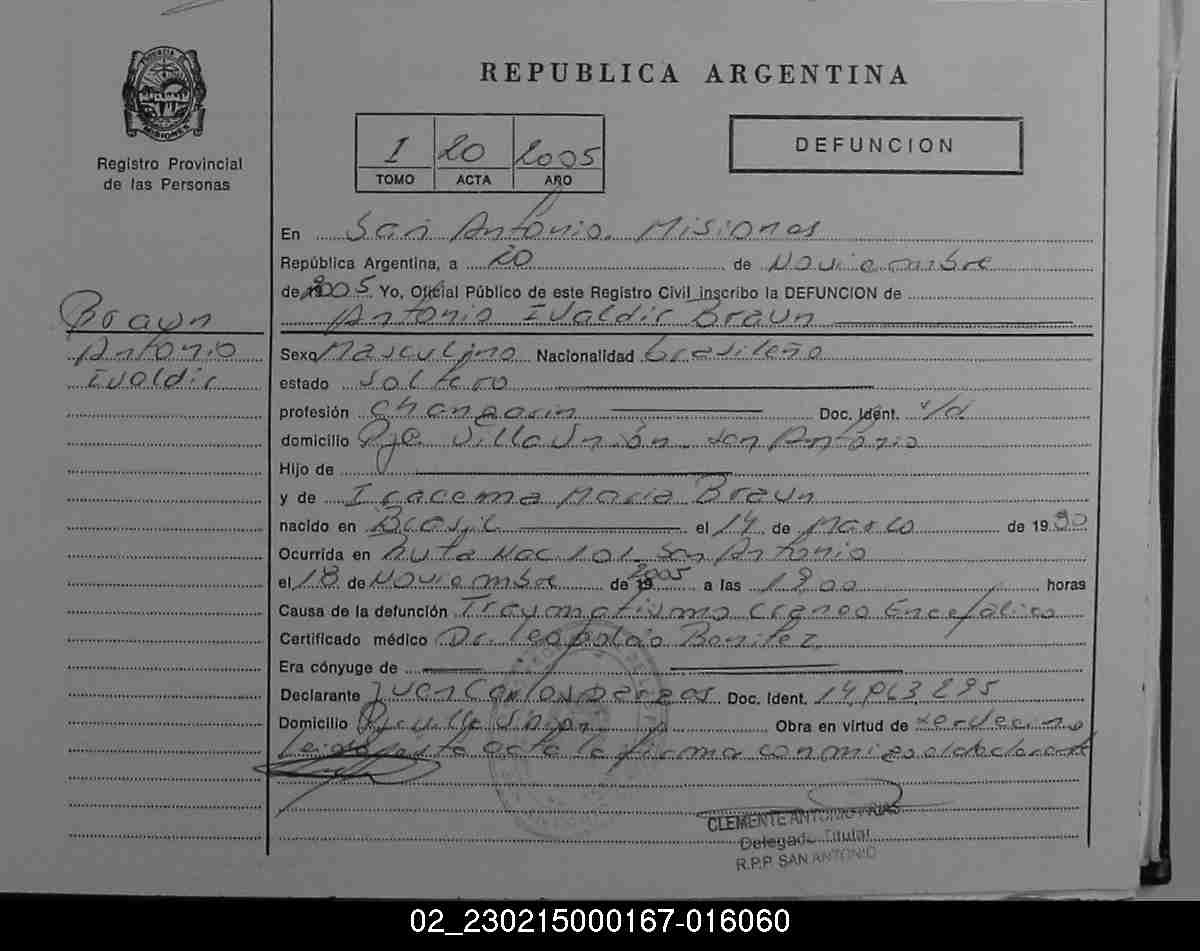 PROVINCIA DE
MISIONES
Registro Provincial
de las Personas
REPUBLICA ARGENTINA
I 20 2005
TOMO ACTA AÑO
DEFUNCION
En San Antonio. Misiones
República Argentina, a 20 de Noviembre
de 2005 Yo, Oficial Público de este Registro Civil inscribo la DEFUNCION de
Antonio Ivaldir Braun
Braun
Antonio
Ivaldir
Sexo Masculino Nacionalidad brasileño
estado soltero
profesión changarin Doc. Ident.
domicilio Pje Villa Unión. San Antonio
Hijo de
y de Iracema Maria Braun
nacido en Brasil el 14 de Marzo de 19
Ocurrida en Ruta Nac 101 San Antonio
el 18 de Noviembre de 2005 a las 19,00 horas
Causa de la defunción Traumatismo Craneo Encefálico
Certificado médico Dr. Leopoldo Benitez
Era cónyuge de
Declarante Juan Carlos Doc. Ident.
Domicilio Pje Villa Unión Obra en virtud de ser vecino
Leida esta acta la firma conmigo el declarante
CLEMENTE ANTONIO FRIAS
Delegado Titular
R.P.P. SAN ANTONIO
02_230215000167-016060